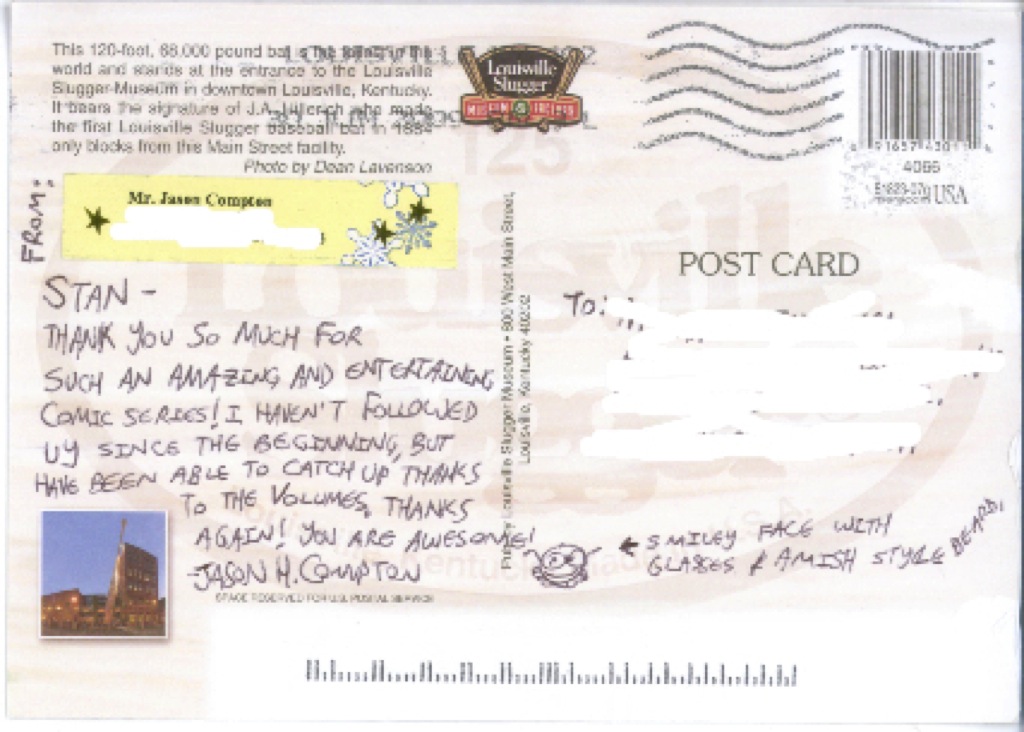 This 120-foot, 68,000 pound bat is the
world and stands at the entrance to the Louisville
Slugger Museum in downtown Louisville, Kentucky.
It bears the signature of J.A. Hillerich who made
the first Louisville Slugger baseball bat in 1884
only blocks from this Main Street facility.
Photo by Dean Lavenson
Louisville
Slugger
MUSEUM & FACTORY
125
4066
USA
FROM:
Mr. Jason Compton
POST CARD
To:
STAN -
THANK YOU SO MUCH FOR
SUCH AN AMAZING AND ENTERTAINING
COMIC SERIES! I HAVEN'T FOLLOWED
UY SINCE THE BEGINNING, BUT
HAVE BEEN ABLE TO CATCH UP THANKS
TO THE VOLUMES, THANKS
AGAIN! YOU ARE AWESOME!
-JASON H. COMPTON
← SMILEY FACE WITH
GLASSES & AMISH STYLE BEARD.
Louisville Slugger Museum • 800 West Main Street,
Louisville, Kentucky 40202
SPACE RESERVED FOR U.S. POSTAL SERVICE